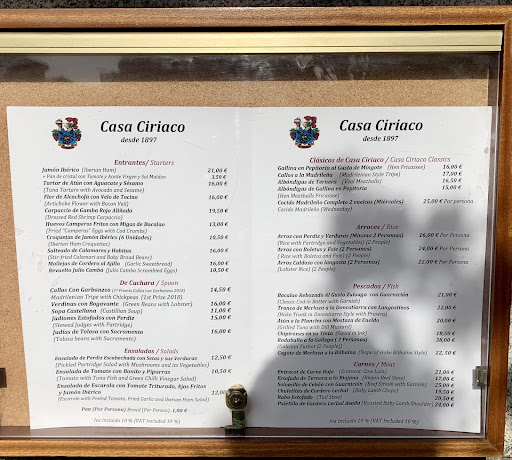 Casa Ciriaco
desde 1897
Entrantes/ Starters
Jamón Ibérico (Iberian Ham) 21,00 €
+ Pan de cristal con Tomate y Aceite Virgen y Sal Maldon 3,50 €
Tartar de Atún con Aguacate y Sésamo 16,00 €
(Tuna Tartare with Avocado and Sesame)
Flor de Alcachofa con Velo de Tocino 16,00 €
(Artichoke Flower with Bacon Veil)
Carpaccio de Gamba Roja Aliñada 19,50 €
(Dressed Red Shrimp Carpaccio)
Huevos Camperos Fritos con Migas de Bacalao 13,00 €
(Fried "Camperos" Eggs with Cod Crumbs)
Croquetas de Jamón Ibérico (6 Unidades) 10,50 €
(Iberian Ham Croquettes)
Salteado de Calamares y Habitas 16,00 €
(Stir-fried Calamari and Baby Broad Beans)
Mollejas de Cordero al Ajillo (Garlic Sweetbread) 16,00 €
Revuelto Julio Camba (Julio Camba Scrambled Eggs) 10,50 €
De Cuchara / Spoon
Callos Con Garbanzos 14,50 €
Madrilenian Tripe with Chickpeas (1st Prize 2018)
Verdinas con Bogavante (Green Beans with Lobster) 16,00 €
Sopa Castellana (Castilian Soup) 11,00 €
Judiones Estofados con Perdiz 15,00 €
(Stewed Judges with Partridge)
Judías de Tolosa con Sacramento 16,00 €
(Tolosa beans with Sacramento)
Ensaladas / Salads
Ensalada de Perdiz Escabechada con Setas y sus Verduras 12,50 €
(Pickled Partridge Salad with Mushrooms and its Vegetables)
Ensalada de Tomate con Bonito y Piparras 10,50 €
(Tomato with Tuna Fish and Green Chilli Vinegar Salad)
Ensalada de Escarola con Tomate Triturado, Ajos Fritos
y Jamón Ibérico 12,00 €
(Escarole with Peeled Tomato, Fried Garlic and Iberian Ham Salad)
Pan (Por Persona) Bread (Per Person) 1,00 €
Iva Incluido 10 % (VAT Included 10 %)
Casa Ciriaco
desde 1897
Clásicos de Casa Ciriaco / Casa Ciriaco Classics
Gallina en Pepitoria al Gusto de Mingote (Hen Fricassee) 16,00 €
Callos a la Madrileña (Madrilenian Style Tripe) 17,00 €
Albóndigas de Ternera (Veal Meatballs) 16,50 €
Albóndigas de Gallina en Pepitoria 15,00 €
(Hen Meatballs Fricassee)
Cocido Madrileño Completo 2 vuelcos (Miércoles) 25,00 € Por persona
Cocido Madrileño (Wednesday)
Arroces / Rice
Arroz con Perdiz y Verduras (Mínimo 2 Personas) 16,00 € Por Persona
(Rice with Partridge and Vegetables) (2 People)
Arroz con Boletus y Foie (2 Personas) 24,00 € Por Persona
(Rice with Boletus and Foie) (2 People)
Arroz Caldoso con bogavante (2 Personas) 22,00 € Por Persona
(Lobster Rice) (2 People)
Pescados / Fish
Bacalao Rebozado Al Gusto Zuloaga con Guarnición 21,00 €
(Classic Cod in Batter with Garnish)
Tronco de Merluza a la Donostiarra con Langostinos 22,00 €
(Hake Trunk in Donostiarra Style with Prawns)
Atún a la Plancha con Mostaza de Eneldo 20,00 €
(Grilled Tuna with Dill Mustard)
Chipirones en su Tinta (Squid in Ink) 18,50 €
Rodaballo a la Gallega ( 2 Personas) 38,00 €
(Galician Turbot (2 People))
Cogote de Merluza a la Bilbaína (Nape of Hake Bilbaína Style) 22,50 €
Carnes / Meat
Entrecot de Carne Roja (Entrecot Cow Loin) 22,00 €
Estofado de Ternera a la Riojana (Rioja Beef Stew) 17,00 €
Solomillo de Cebón con Guarnición (Beef Sirloin with Garnish) 25,00 €
Chuletitas de Cordero Lechal (Baby Lamb Chops) 19,50 €
Rabo Estofado (Tail Stew) 20,00 €
Paletilla de Cordero Lechal Asada (Roasted Baby Lamb Shoulder) 24,00 €
Iva Incluido 10 % (VAT Included 10 %)